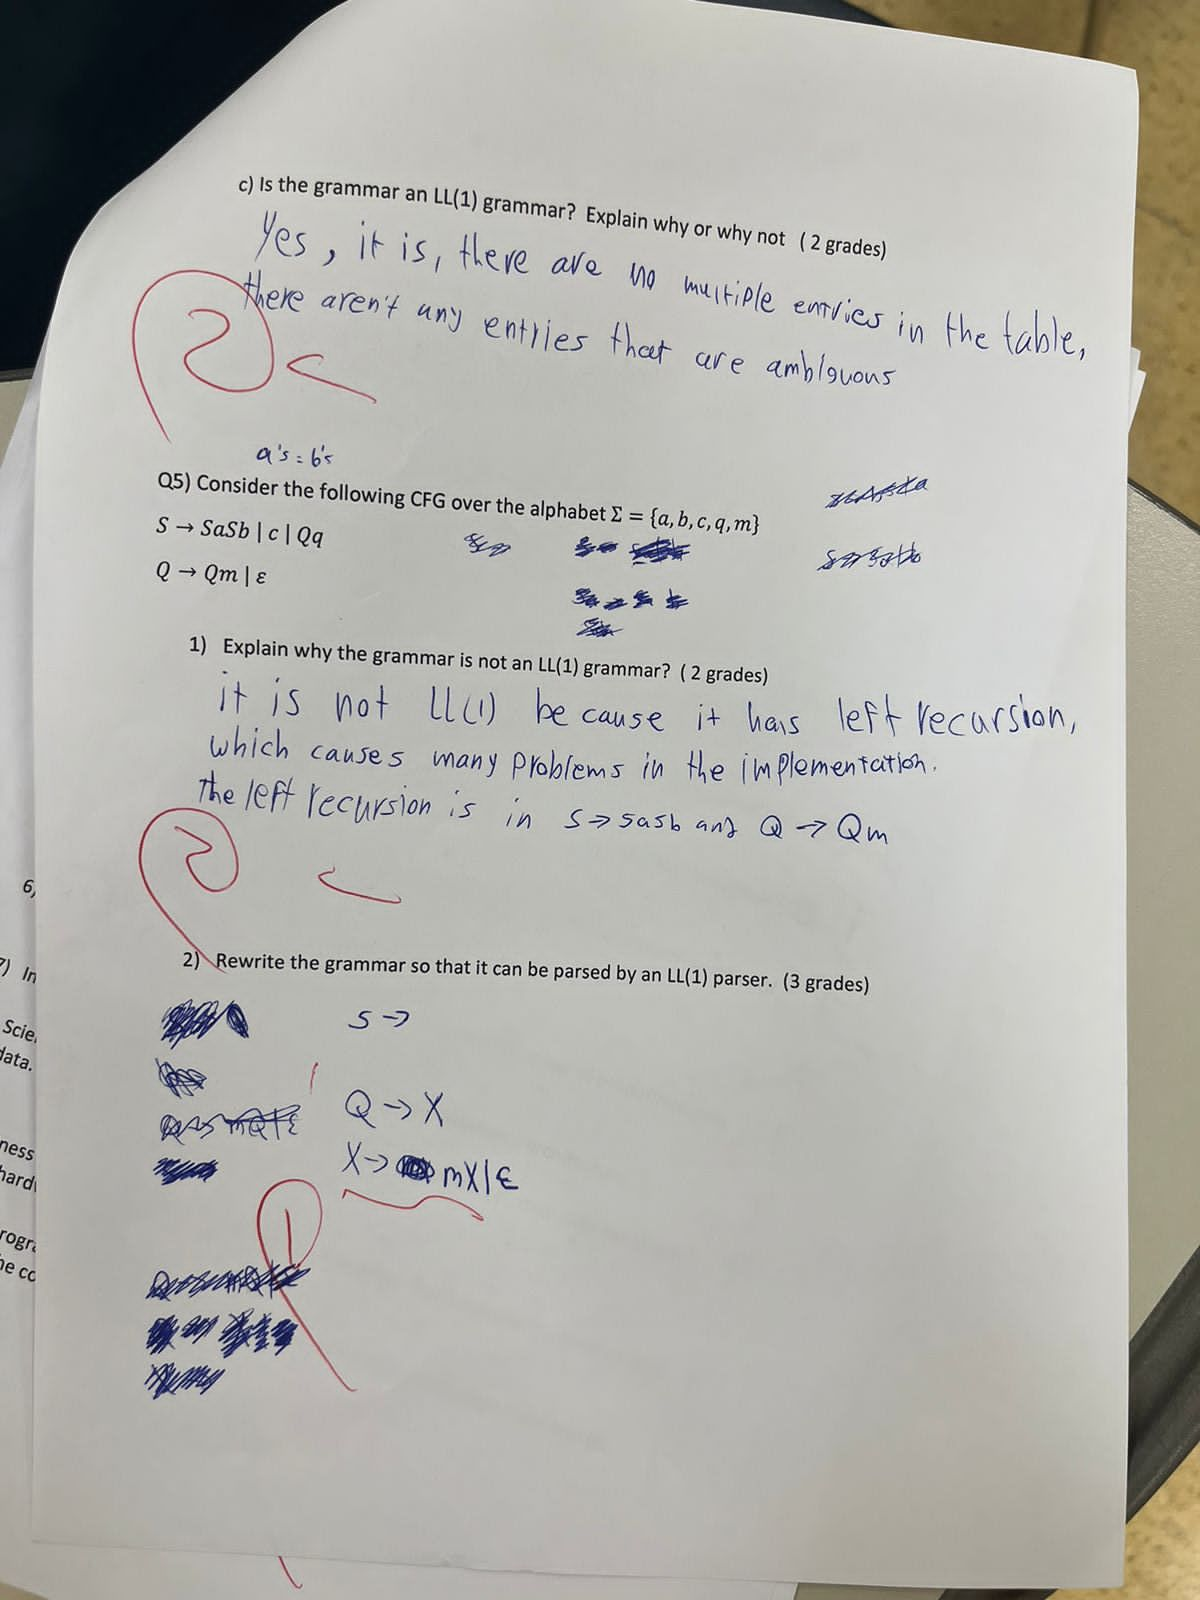 c) Is the grammar an LL(1) grammar? Explain why or why not ( 2 grades)
Yes, it is, there are no multiple entries in the table,
there aren't any entries that are ambiguous
2
a's = b's
Q5) Consider the following CFG over the alphabet Σ = {a, b, c, q, m}
S → SaSb | c | Qq
Q → Qm | ε
1) Explain why the grammar is not an LL(1) grammar? ( 2 grades)
it is not LL(1) because it has left recursion,
which causes many problems in the implementation.
The left recursion is in S → SaSb and Q → Qm
2
2) Rewrite the grammar so that it can be parsed by an LL(1) parser. (3 grades)
S →
Q → X
X → mX | ε
1
6)
7) In
Scie
data.
ness
hard
rogra
he co